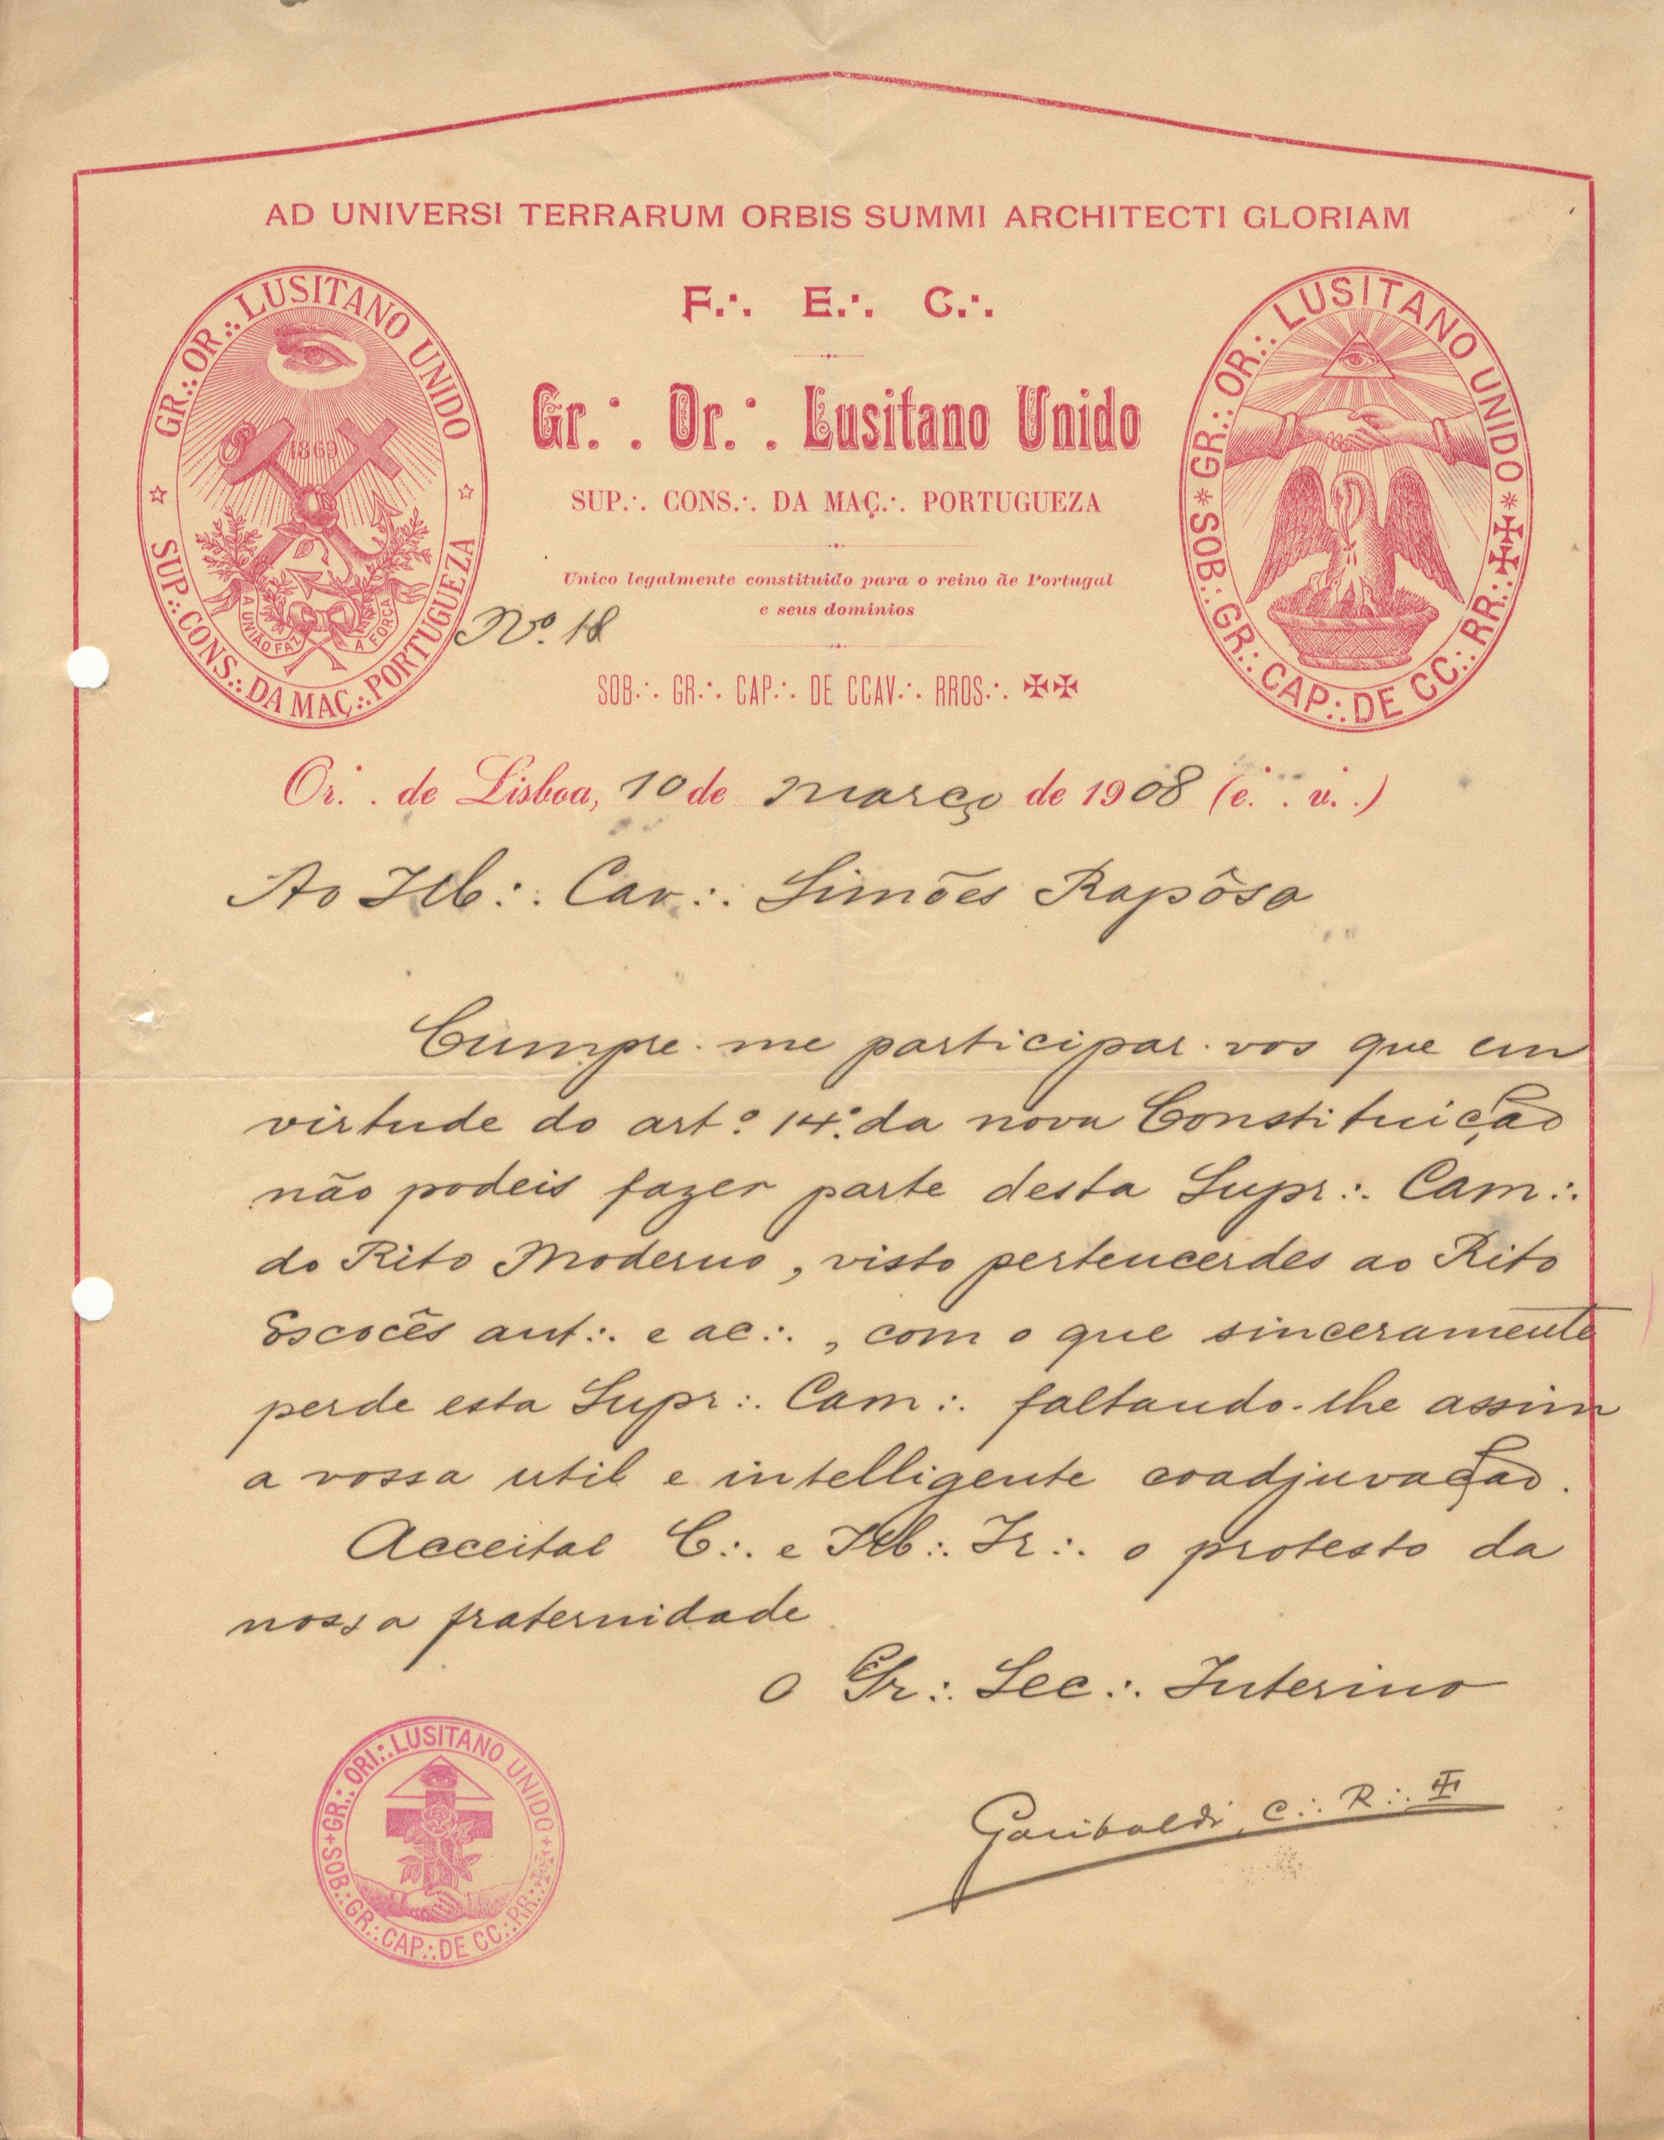 AD UNIVERSI TERRARUM ORBIS SUMMI ARCHITECTI GLORIAM
F∴ E∴ C∴
GR∴ OR∴ LUSITANO UNIDO
☆ SUP∴ CONS∴ DA MAÇ∴ PORTUGUEZA ☆
1869
A UNIÃO FAZ A FORÇA
Gr∴ Or∴ Lusitano Unido
SUP∴ CONS∴ DA MAÇ∴ PORTUGUEZA
Unico legalmente constituido para o reino de Portugal
e seus dominios
Nº 18
SOB∴ GR∴ CAP∴ DE CCAV∴ RROS∴ ✠✠
GR∴ OR∴ LUSITANO UNIDO
* SOB∴ GR∴ CAP∴ DE CC∴ RR∴ ✠✠ *
Or∴ de Lisboa, 10 de março de 1908 (e∴ v∴)
Ao Ill∴ Cav∴ Simões Rapôso
Cumpre-me participar-vos que em
virtude do artº 14º da nova Constituição
não podeis fazer parte desta Supr∴ Cam∴
do Rito Moderno, visto pertencerdes ao Rito
Escocês ant∴ e ac∴, com o que sinceramente
perde esta Supr∴ Cam∴ faltando-lhe assim
a vossa util e intelligente coadjuvação.
Acceitae C∴ e Ill∴ Ir∴ o protesto da
nossa fraternidade
O Gr∴ Sec∴ Interino
Garibaldi, C∴ R∴ ✠
GR∴ ORI∴ LUSITANO UNIDO
+ SOB∴ GR∴ CAP∴ DE CC∴ RR∴ +